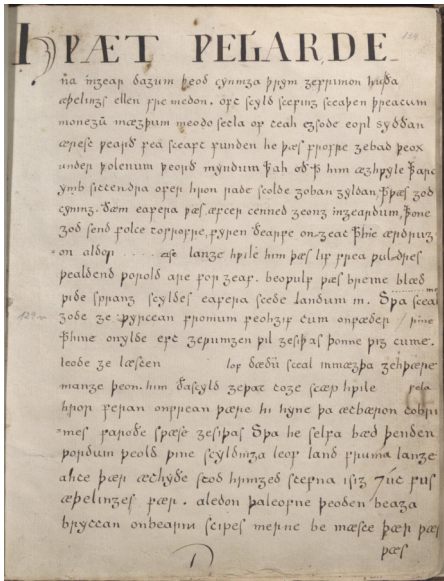 HǷÆT ǷEGARDE 129
na ingear dagum þeod cyninga þrym gefrunon huða
æþelings ellen fremedon. oft scyld scefing sceaþen þreatum
monegū mægþum meodo setla of teah egsode eorl syððan
ærest ƿearð fea sceaft funden he þæs frofre gebad ƿeox
under ƿolcnum ƿeorð myndum þah oð ꝥ him æghƿylc þara
ymb sittendra ofer hron rade scolde goban gyldan, ꝥ ƿæs god
cyning. ðæm eafera ƿæs æfter cenned geong ingeardum, þone
god send folce tofrofre, fyren ðearfe on geat ꝥ hie ærdrug
on aldor .... ase lange hƿile him þæs lif frea ƿuldres
ƿealdend ƿorold are for geaf. beoƿulf ƿæs breme blæd
ƿide sprang scyldes eafera scede landum in. Sƿa sceal
gode ge ƿyrcean fromum feohgif tum onfæder / rine
ꝥ hine onylde eft geƿunigen ƿil gesiþas þonne ƿig cume.
leode ge læsten lof dædū sceal inmægþa gehƿære
mange þeon. him ðascyld geƿat toge scæp hƿile fela
hror feran onfrean ƿære hi hyne þa ætbæron tobri
mes faroðe sƿæse gesiþas Sƿa he selfa bæd þenden
ƿordum ƿeold ƿine scyldinga leof land fruma lange
ahte þær æthyðe stod hringed stefna isig ⁊ut fus
æþelinges fær. aledon þaleofne þeoden beaga
bryttan onbearm scipes merne be mæste þær ƿæs
ƿæs